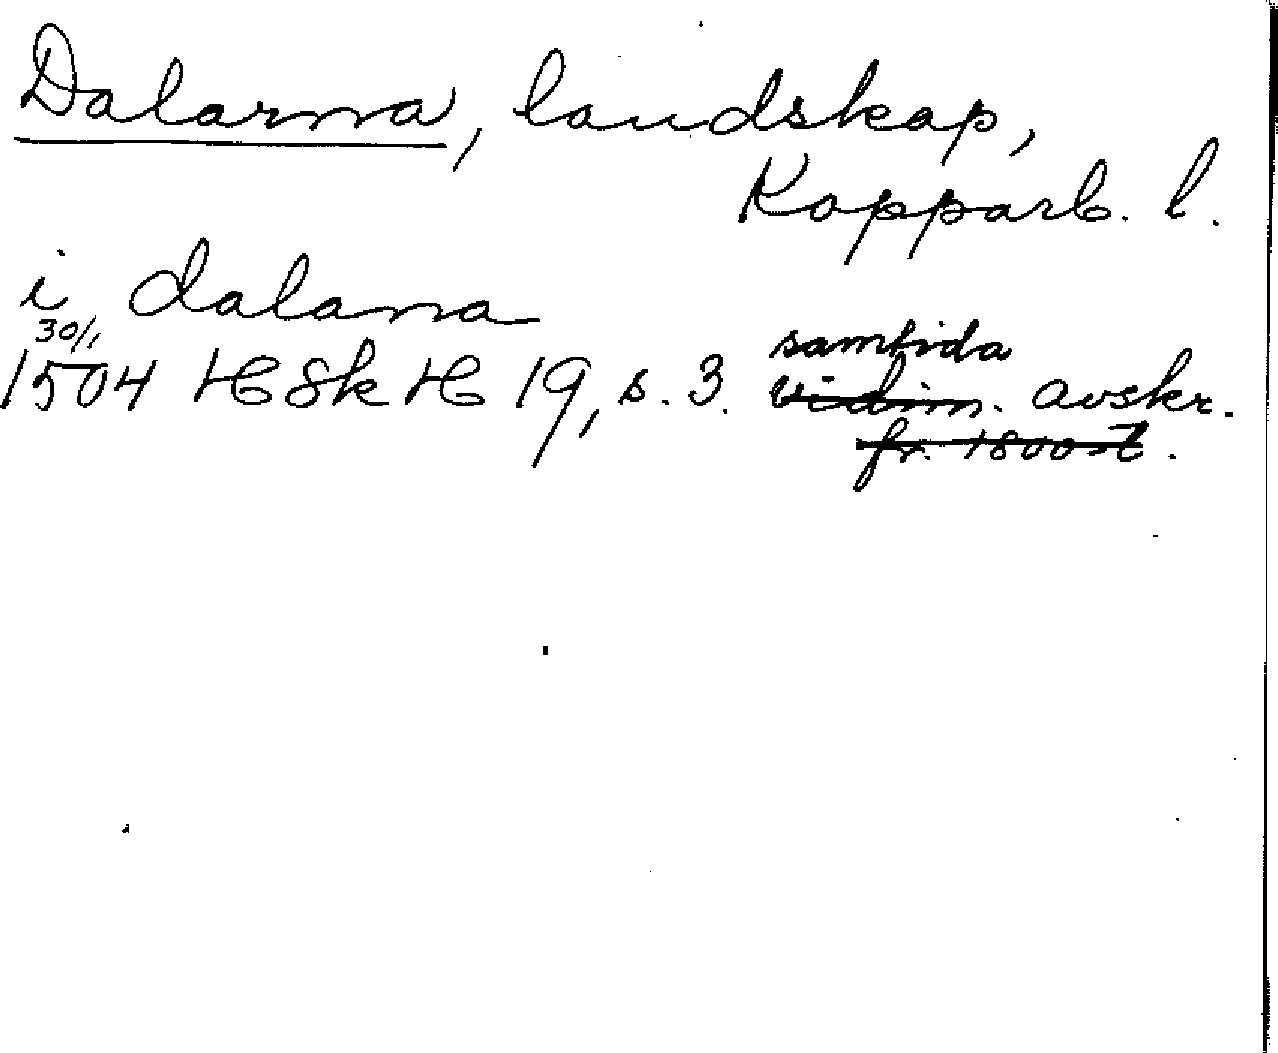 Dalarna, landskap,
Kopparb. l.
i dalarna
30/1
1504 HSkH 19, s. 3. samtida
vidim. avskr.
fr. 1800-t.